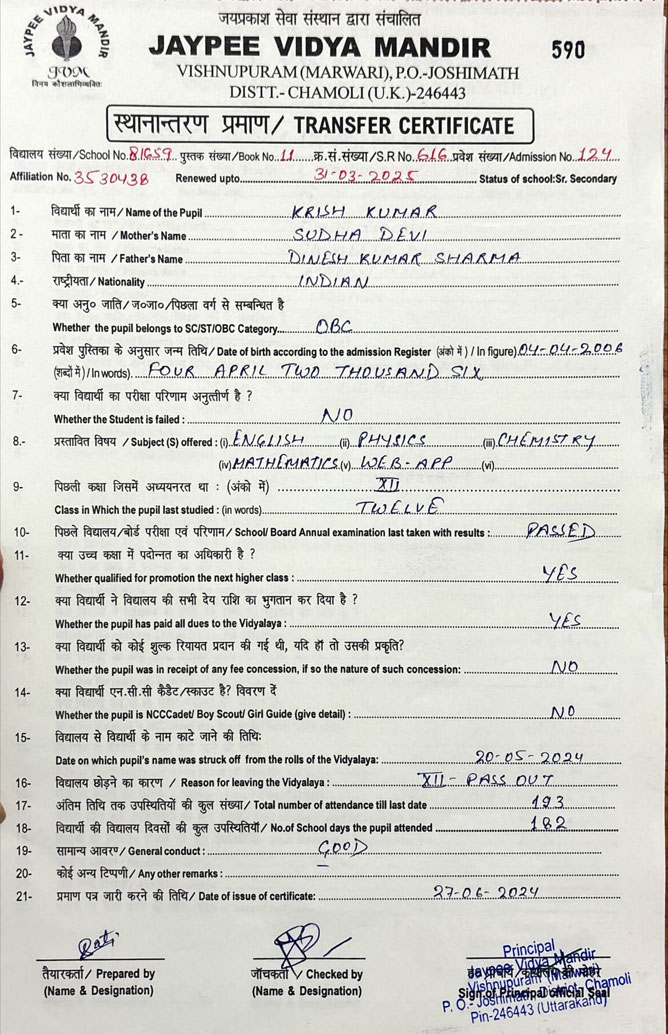 जयप्रकाश सेवा संस्थान द्वारा संचालित
JAYPEE VIDYA MANDIR
JVM
विनय कौशलाभिव्यक्तिः
JAYPEE VIDYA MANDIR 590
VISHNUPURAM (MARWARI), P.O.-JOSHIMATH
DISTT.- CHAMOLI (U.K.)-246443
स्थानान्तरण प्रमाण/ TRANSFER CERTIFICATE
विद्यालय संख्या/School No. 81659 पुस्तक संख्या/Book No. 11 क्र.सं.संख्या/S.R No. 616 प्रवेश संख्या/Admission No. 124
Affiliation No. 3530438 Renewed upto 31-03-2025 Status of school:Sr. Secondary
1- विद्यार्थी का नाम/ Name of the Pupil KRISH KUMAR
2- माता का नाम / Mother's Name SUDHA DEVI
3- पिता का नाम / Father's Name DINESH KUMAR SHARMA
4.- राष्ट्रीयता/ Nationality INDIAN
5- क्या अनु० जाति/ ज०जा०/पिछला वर्ग से सम्बन्धित है
Whether the pupil belongs to SC/ST/OBC Category... OBC
6- प्रवेश पुस्तिका के अनुसार जन्म तिथि/ Date of birth according to the admission Register (अंको में ) / In figure) 04-04-2006
(शब्दों में ) / In words). FOUR APRIL TWO THOUSAND SIX
7- क्या विद्यार्थी का परीक्षा परिणाम अनुत्तीर्ण है ?
Whether the Student is failed : NO
8.- प्रस्तावित विषय / Subject (S) offered : (i) ENGLISH (ii) PHYSICS (iii) CHEMISTRY
(iv) MATHEMATICS (v) WEB-APP (vi)
9- पिछली कक्षा जिसमें अध्ययनरत था : (अंको में) XII
Class in Which the pupil last studied : (in words) TWELVE
10- पिछले विद्यालय/बोर्ड परीक्षा एवं परिणाम/ School/ Board Annual examination last taken with results : PASSED
11- क्या उच्च कक्षा में पदोन्नत का अधिकारी है ?
Whether qualified for promotion the next higher class : YES
12- क्या विद्यार्थी ने विद्यालय की सभी देय राशि का भुगतान कर दिया है ?
Whether the pupil has paid all dues to the Vidyalaya : YES
13- क्या विद्यार्थी को कोई शुल्क रियायत प्रदान की गई थी, यदि हाँ तो उसकी प्रकृति?
Whether the pupil was in receipt of any fee concession, if so the nature of such concession: NO
14- क्या विद्यार्थी एन.सी.सी कैडैट/स्काउट है? विवरण दें
Whether the pupil is NCCCadet/ Boy Scout/ Girl Guide (give detail) : NO
15- विद्यालय से विद्यार्थी के नाम काटे जाने की तिथि:
Date on which pupil's name was struck off from the rolls of the Vidyalaya: 20-05-2024
16- विद्यालय छोड़ने का कारण / Reason for leaving the Vidyalaya : XII - PASS OUT
17- अंतिम तिथि तक उपस्थितियों की कुल संख्या/ Total number of attendance till last date 193
18- विद्यार्थी की विद्यालय दिवसों की कुल उपस्थितियाँ/ No.of School days the pupil attended 182
19- सामान्य आवरण/ General conduct : GOOD
20- कोई अन्य टिप्पणी/ Any other remarks : –
21- प्रमाण पत्र जारी करने की तिथि/ Date of issue of certificate: 27-06-2024
तैयारकर्ता/ Prepared by
(Name & Designation)
जाँचकर्ता / Checked by
(Name & Designation)
Principal
Jaypee Vidya Mandir
Vishnupuram (Marwari)
P. O.- Joshimath, District, Chamoli
Pin-246443 (Uttarakand)
Sign of Principal official Seal